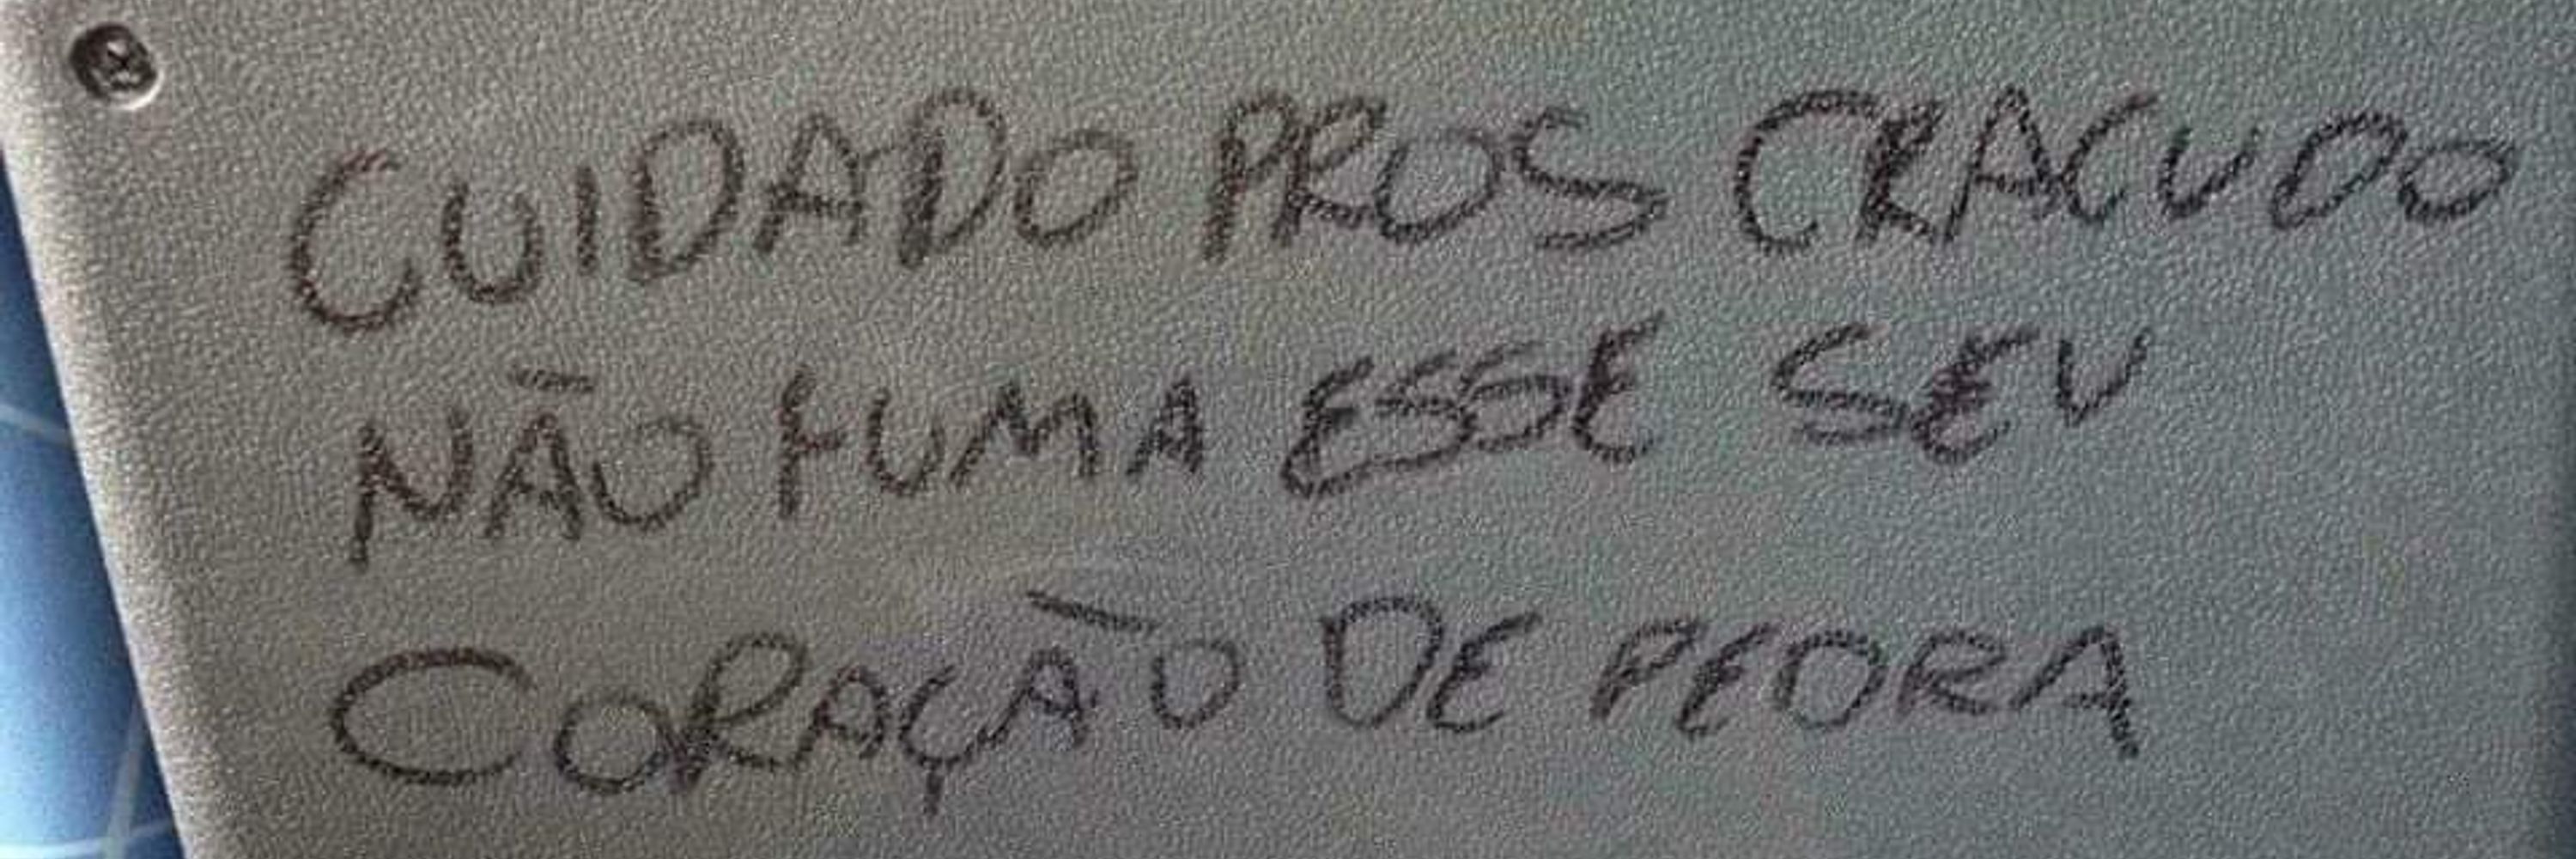 CUIDADO PROS CRACUDO
NÃO FUMA ESSE SEU
CORAÇÃO DE PEDRA